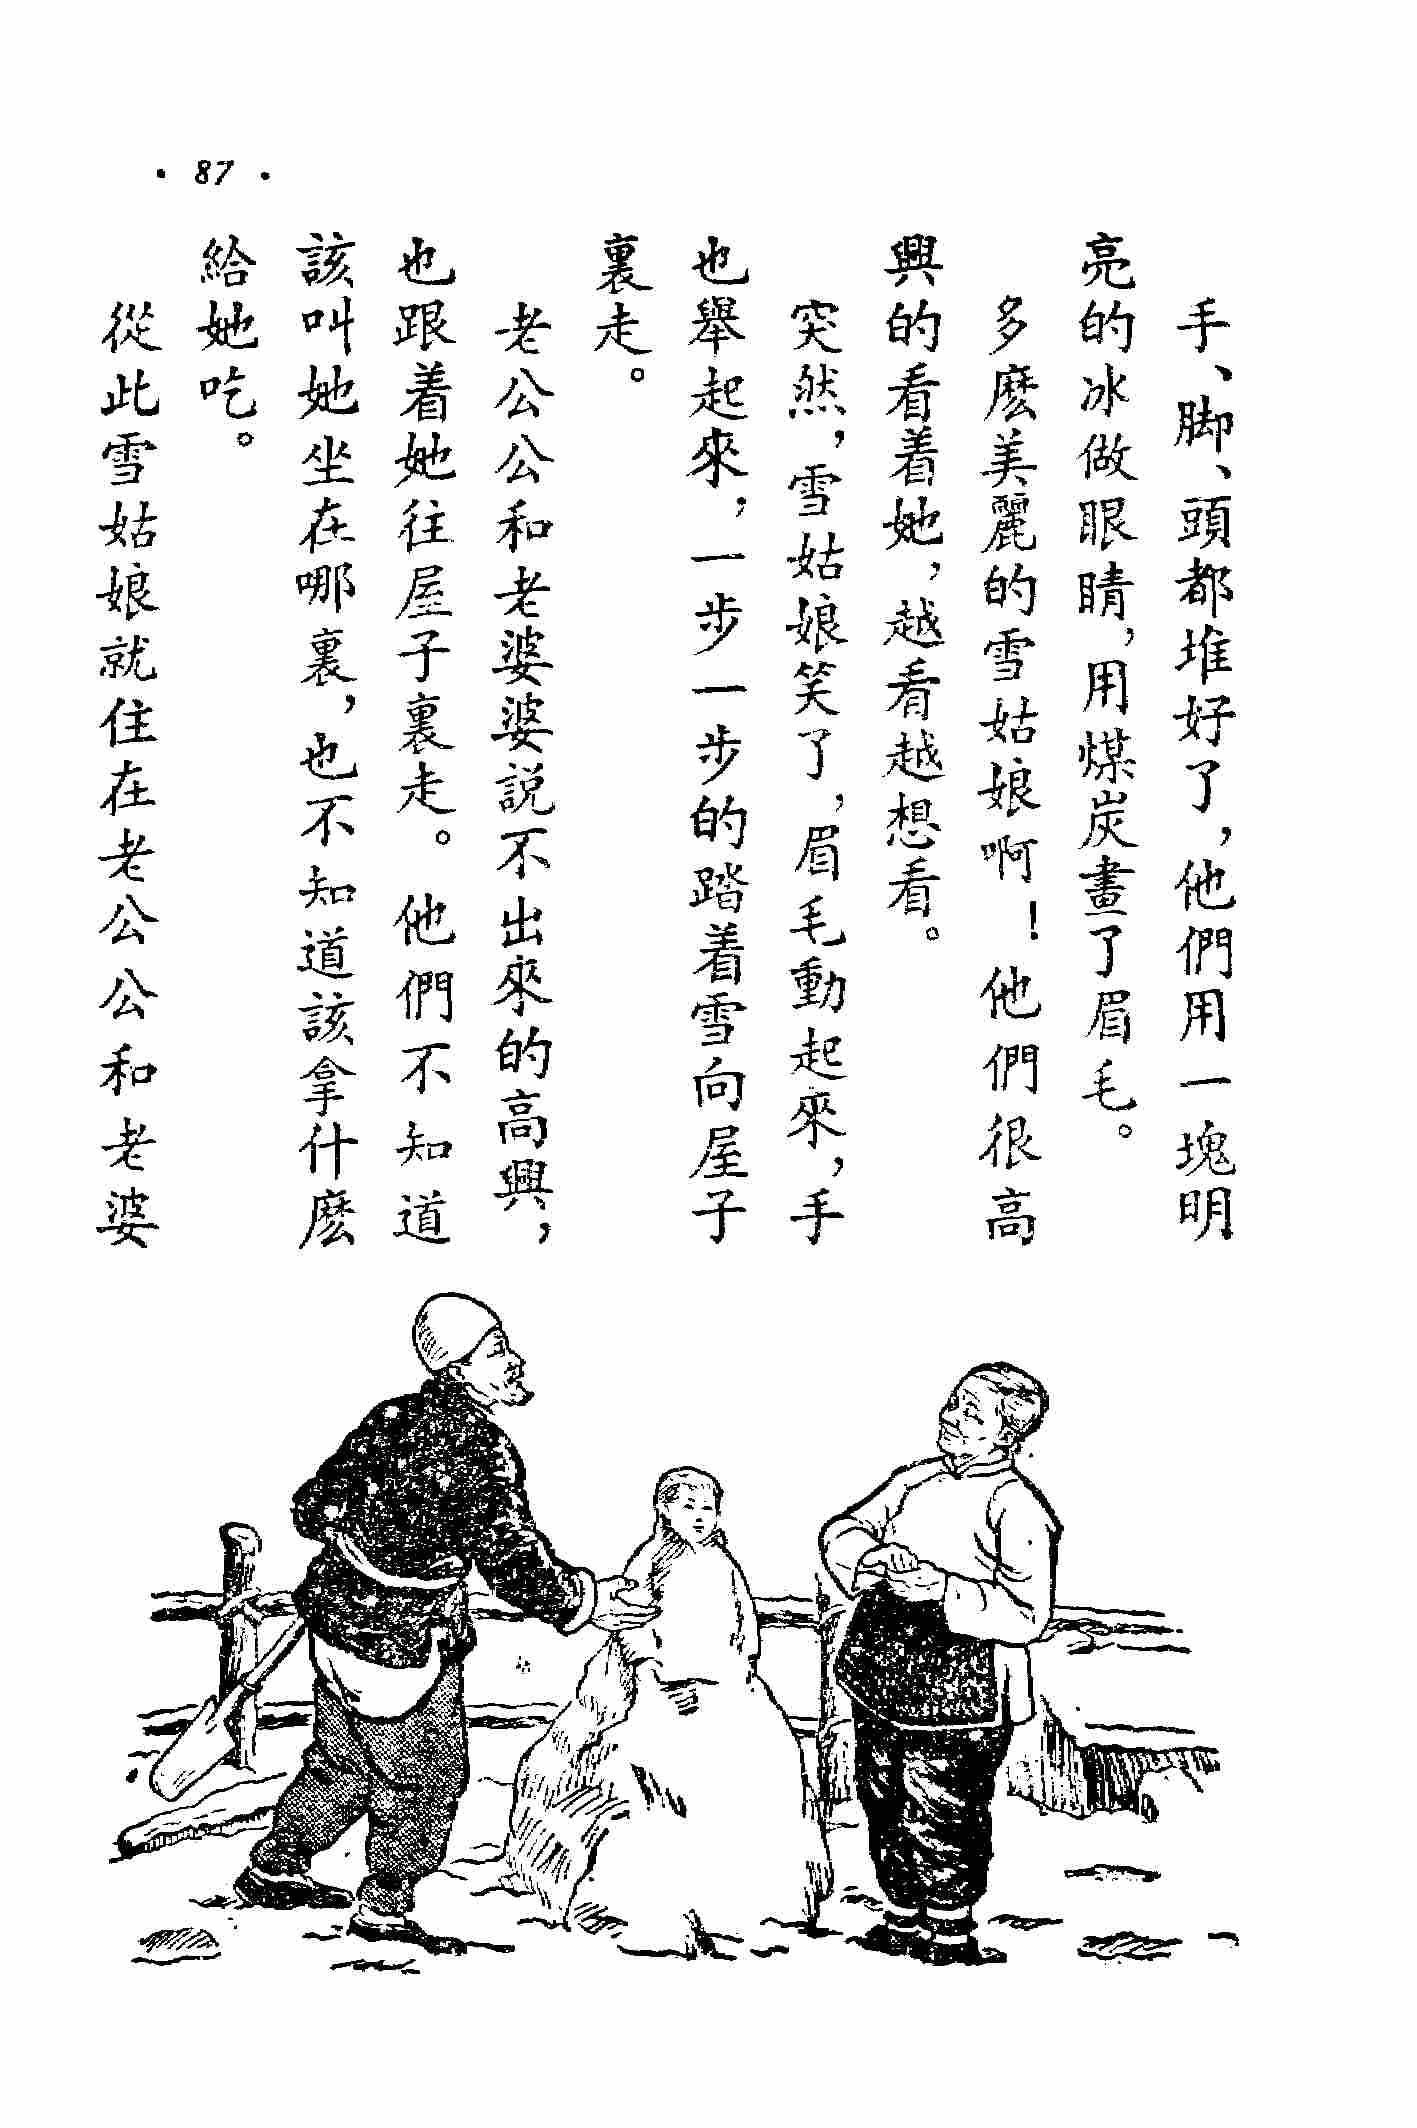 · 87 ·
手、脚、頭都堆好了，他們用一塊明
亮的冰做眼睛，用煤炭畫了眉毛。
多麽美麗的雪姑娘啊！他們很高
興的看着她，越看越想看。
突然，雪姑娘笑了，眉毛動起來，手
也舉起來，一步一步的踏着雪向屋子
裏走。
老公公和老婆婆説不出來的高興，
也跟着她往屋子裏走。他們不知道
該叫她坐在哪裏，也不知道該拿什麽
給她吃。
從此雪姑娘就住在老公公和老婆